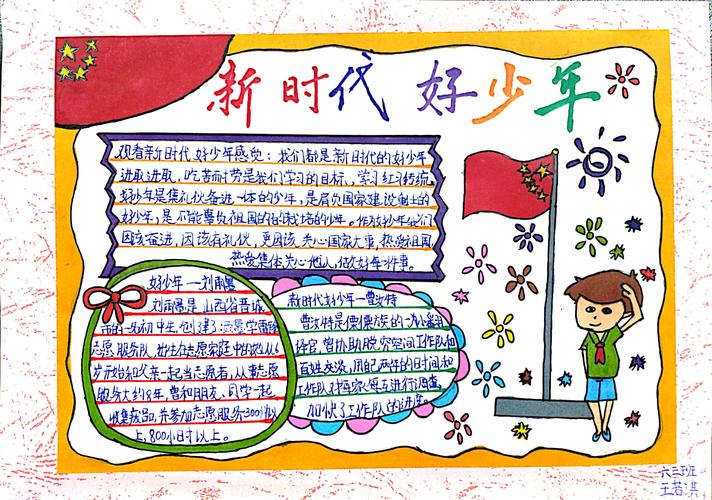 新时代 好少年
观看新时代好少年感觉：我们都是新时代的好少年
进取进取，吃苦而耐劳是我们学习的目标，学习红习传统
好少年是集礼仪备进一体的少年，是肩负国家建设制土的
好少年，是不能辜负祖国的栽培的少年。作为好少年我们
因该奋进，因该有礼仪，更因该关心国家大事，热爱祖国
热爱集体，关心他人，做好每一件事。
好少年——刘雨
刘雨是山西省晋城
市的一名初中生，创建了学雷锋
志愿服务队，出生在志愿家庭中的她从6
岁开始和父亲一起当志愿者，从事志愿
服务大约8年，曾和朋友、同学一起
收集蔬品，并参加志愿服务300余次以
上，800小时以上。
新时代好少年—曹汝特
曹汝特是傈僳族的一次小翻
译官，曾协助脱穷空间工作队和
百姓交流，用自己两年的日时间和
工作队对百家每五进行调查，
加快了工作队的进度。
六三班
王若淇